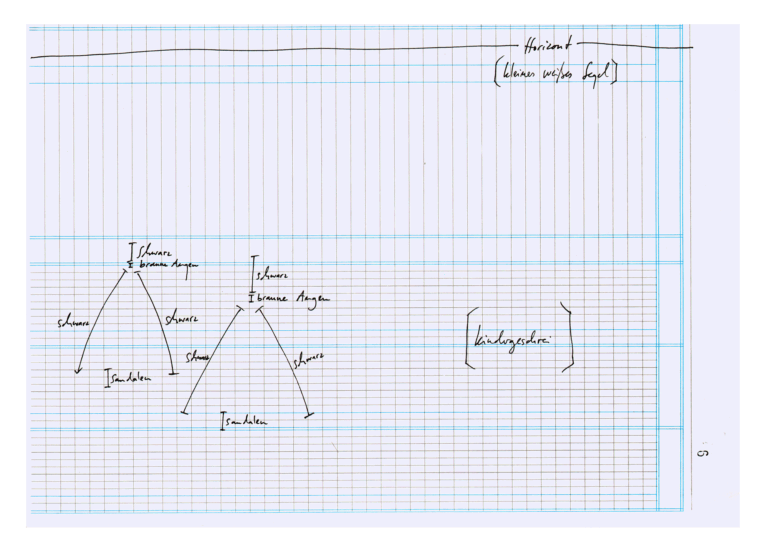 Horizont
(kleines weißes Segel)
schwarz
braune Augen
schwarz
braune Augen
schwarz
schwarz
[Kindergeschrei]
schwarz
schwarz
Sandalen
Sandalen
5